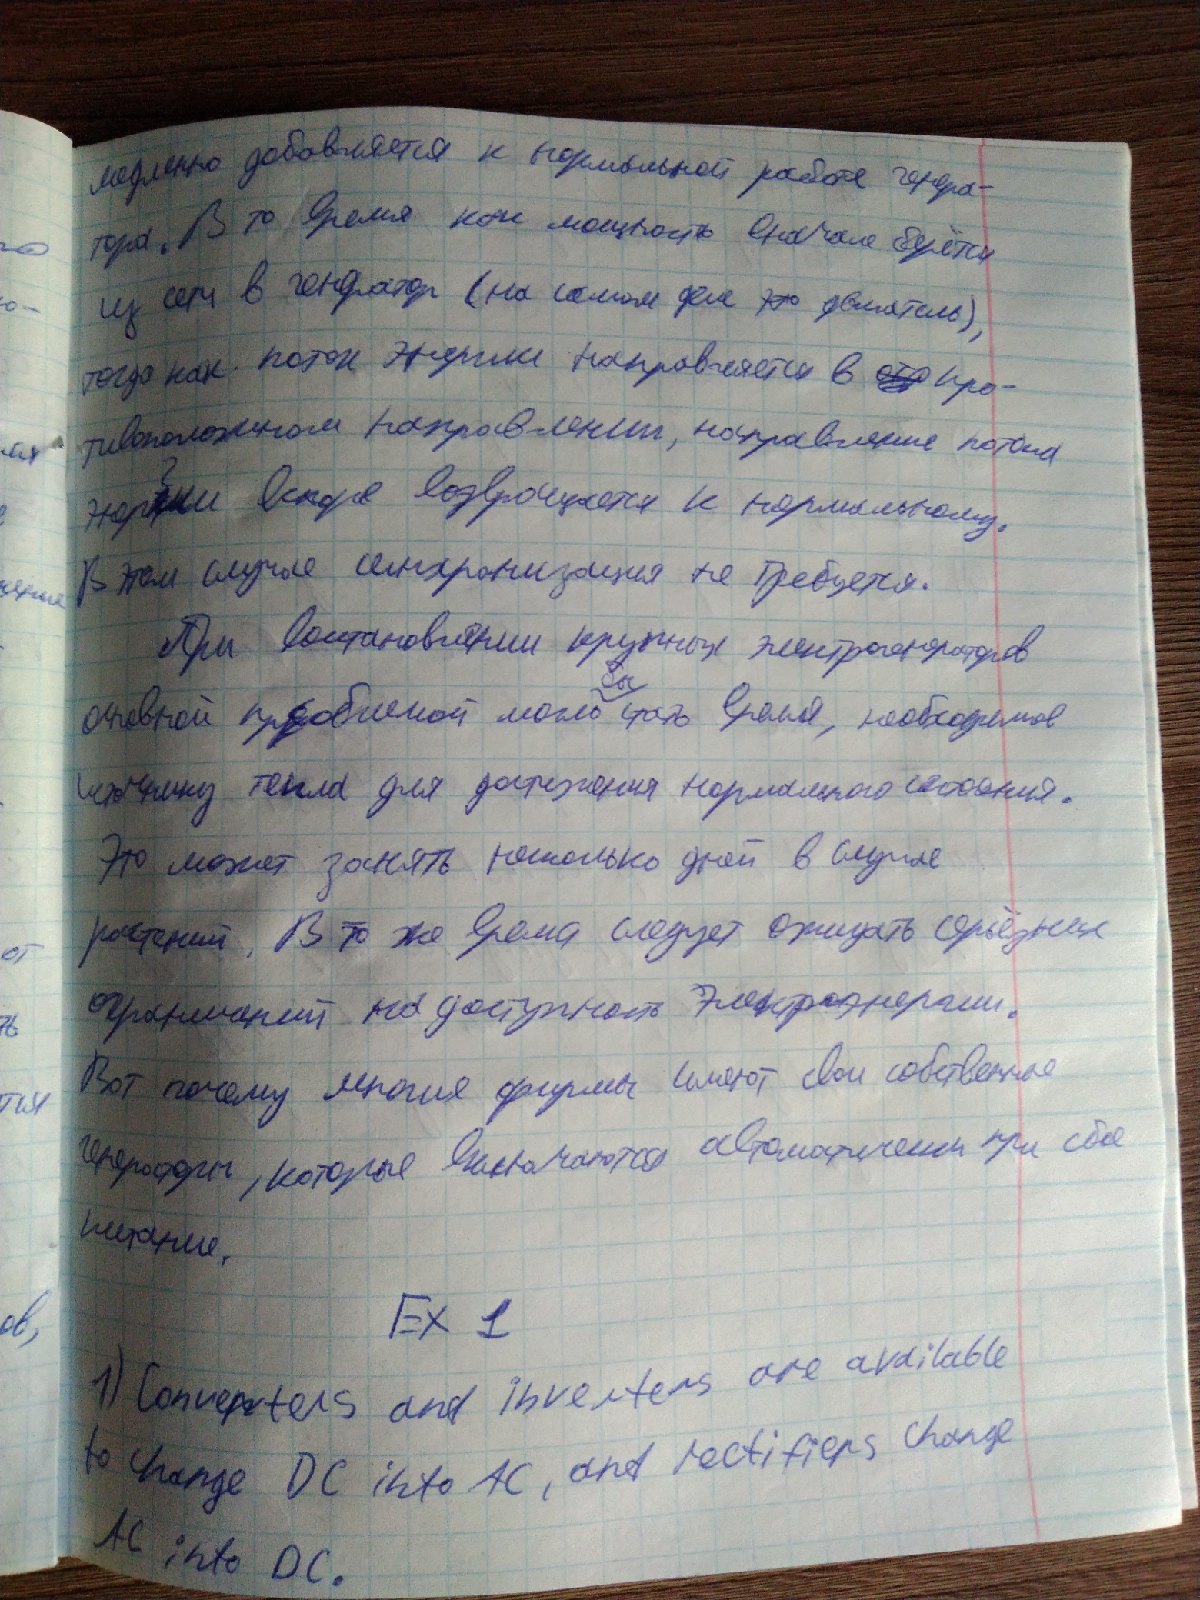 медленно добавляется к нормальной работе генера-
тора. В то время как мощность вначале берётся
из сети в генератор (на самом деле это двигатель),
тогда как поток энергии направляется в про-
тивоположном направлении, направление потока
энергии вскоре возвращается к нормальному.
В этом случае синхронизация не требуется.
При восстановлении крупных электрогенераторов
основной проблемой могло бы стать время, необходимое
источнику тепла для достижения нормального состояния.
Это может занять несколько дней в случае
растений. В то же время следует ожидать серьёзных
ограничений на доступность электроэнергии.
Вот почему многие фирмы имеют свои собственные
генераторы, которые включаются автоматически при сбое
питания.
Ex 1
1) Converters and inverters are available
to change DC into AC, and rectifiers change
AC into DC.
ов,
от
ть
тся